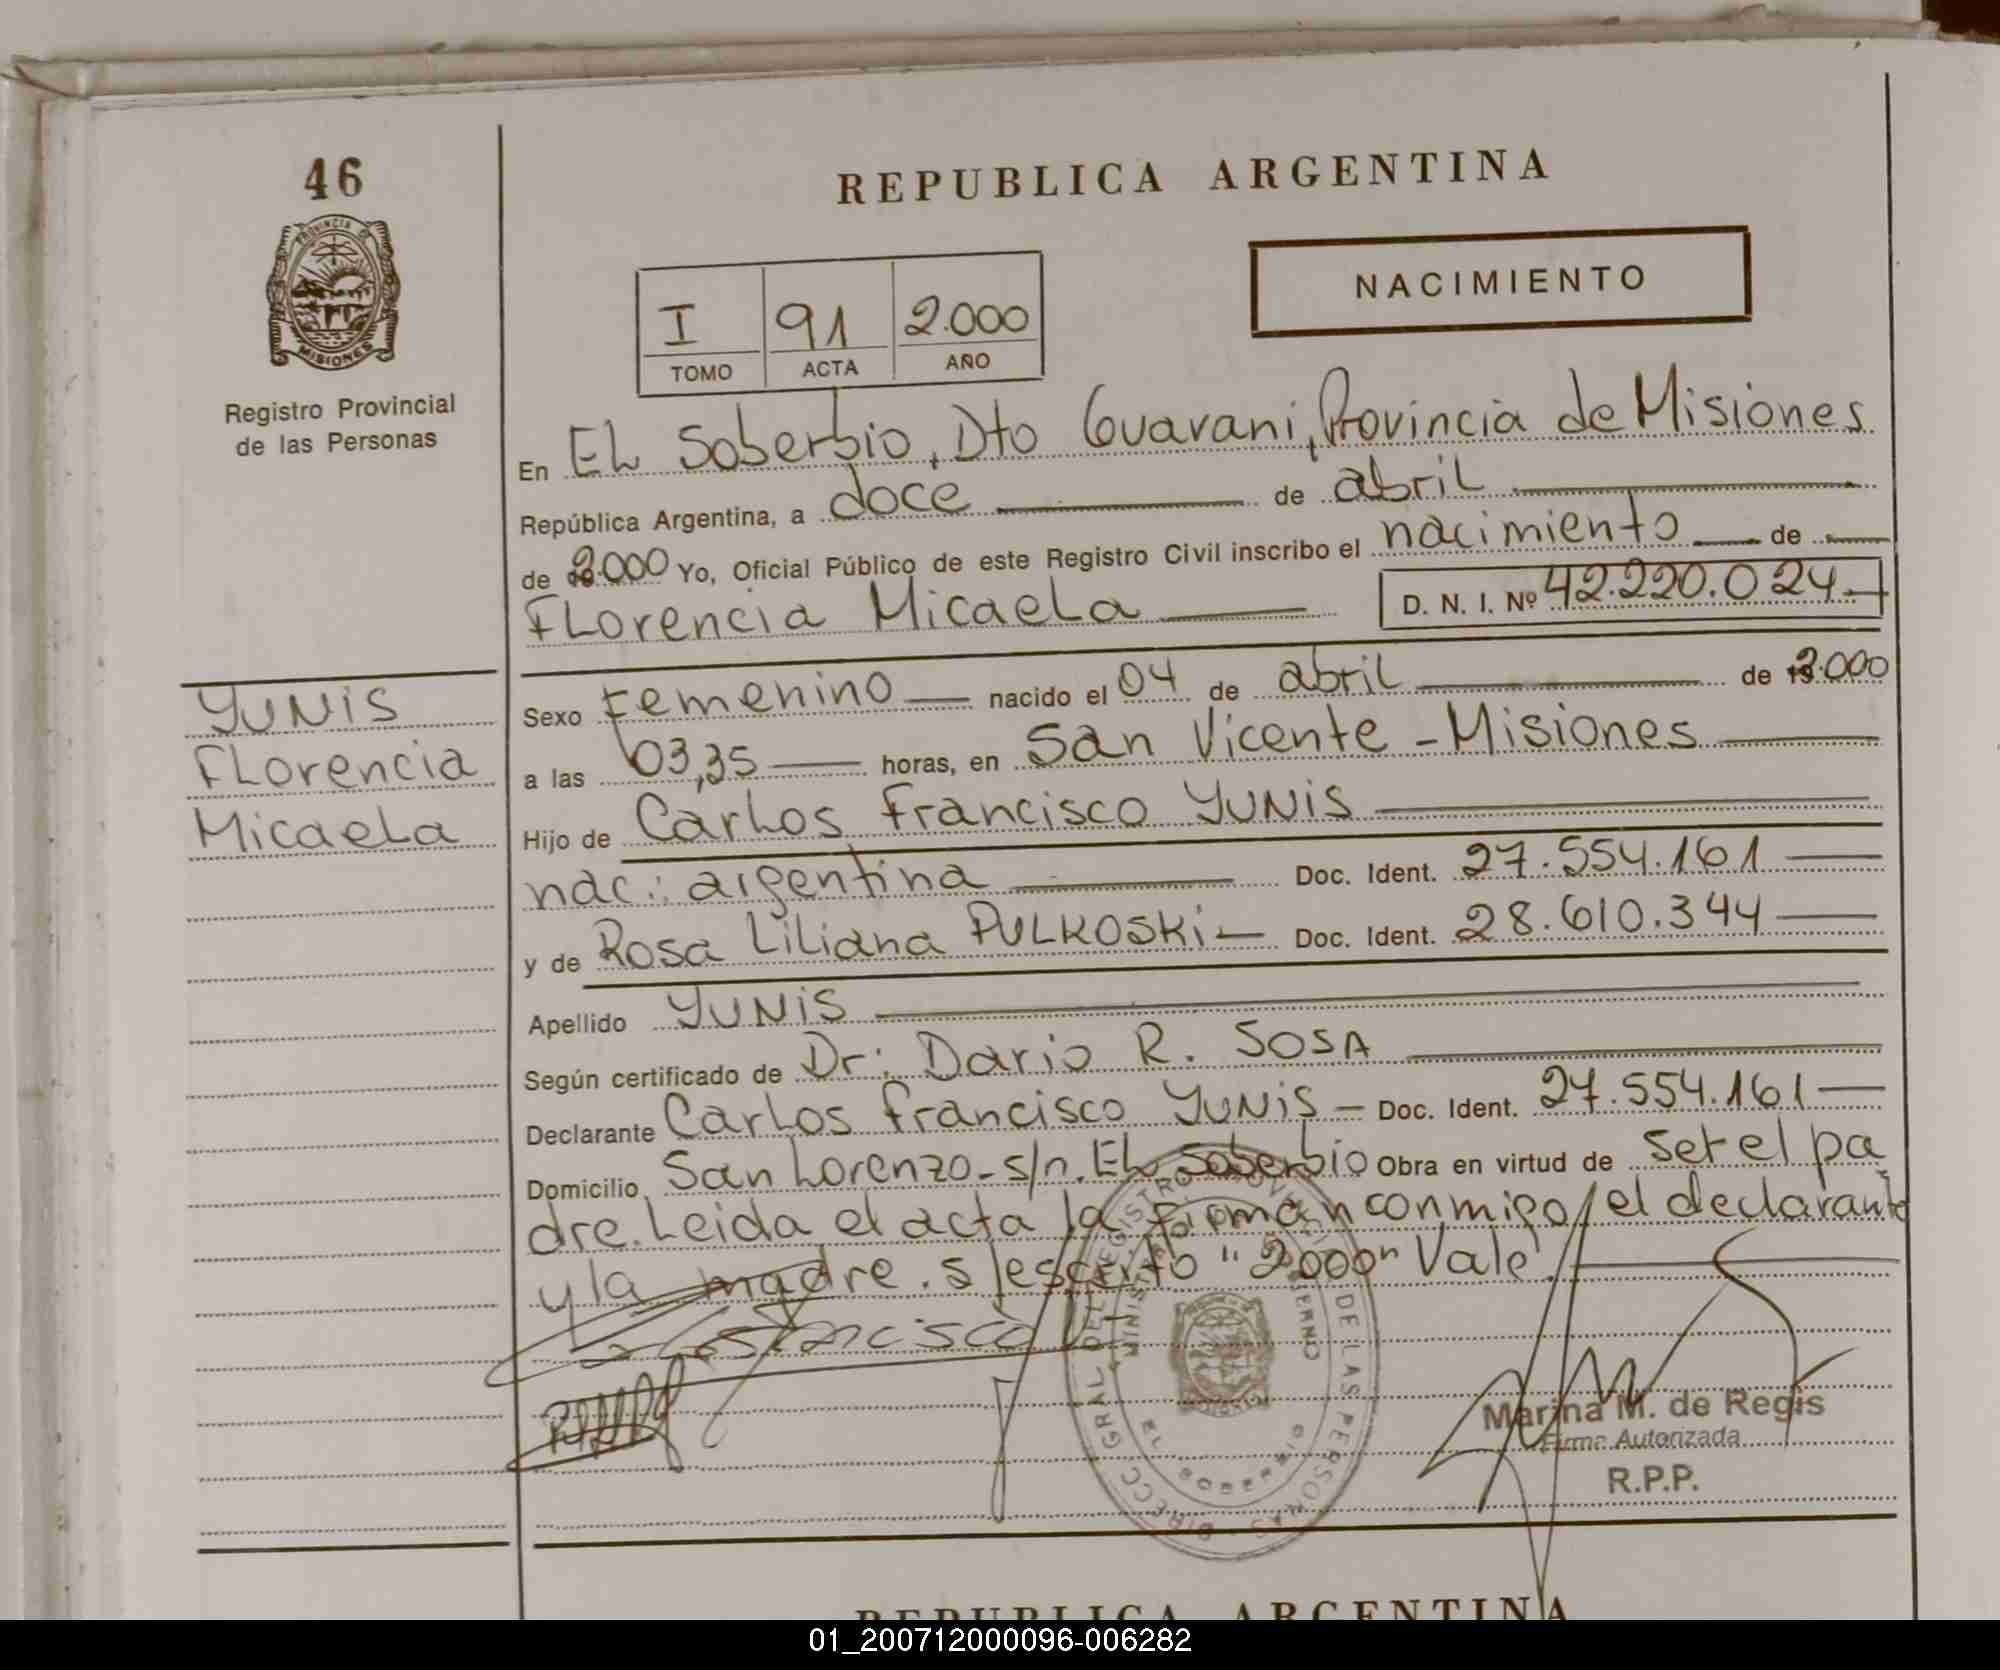 46
REPUBLICA ARGENTINA
PROVINCIA DE
MISIONES
Registro Provincial
de las Personas
NACIMIENTO
I 91 2.000
TOMO ACTA AÑO
En EL Soberbio, Dto Guarani, Provincia de Misiones
República Argentina, a doce de abril
de 2.000 Yo, Oficial Público de este Registro Civil inscribo el nacimiento de
FLorencia MicaeLa D. N. I. Nº 42.220.024
YUNIS
FLorencia
MicaeLa
Sexo Femenino nacido el 04 de abril de 2.000
a las 03,35 horas, en San Vicente - Misiones
Hijo de CarLos Francisco YUNIS
nac.: argentina Doc. Ident. 27.554.161
y de Rosa LiLiana PULKOSKI Doc. Ident. 28.610.344
Apellido YUNIS
Según certificado de Dr: Dario R. SOSA
Declarante CarLos Francisco YUNIS - Doc. Ident. 27.554.161
Domicilio San Lorenzo - s/n. EL Soberbio Obra en virtud de ser el pa
dre. Leida el acta la firman conmigo, el declarante
y la madre. s/escrito "2000" Vale.
DIRECC GRAL DEL REGISTRO PROVINCIAL DE LAS PERSONAS
MINISTERIO DE GOBIERNO
EL SOBERBIO
Marina M. de Regis
Firma Autorizada
R.P.P.
REPUBLICA ARGENTINA
01_200712000096-006282